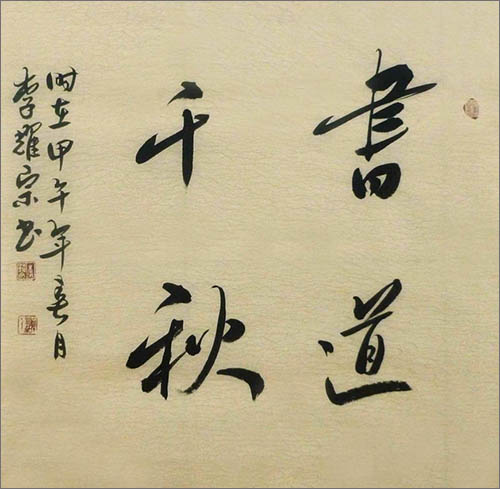 書道
千秋
时在甲午年春月
李耀宗书